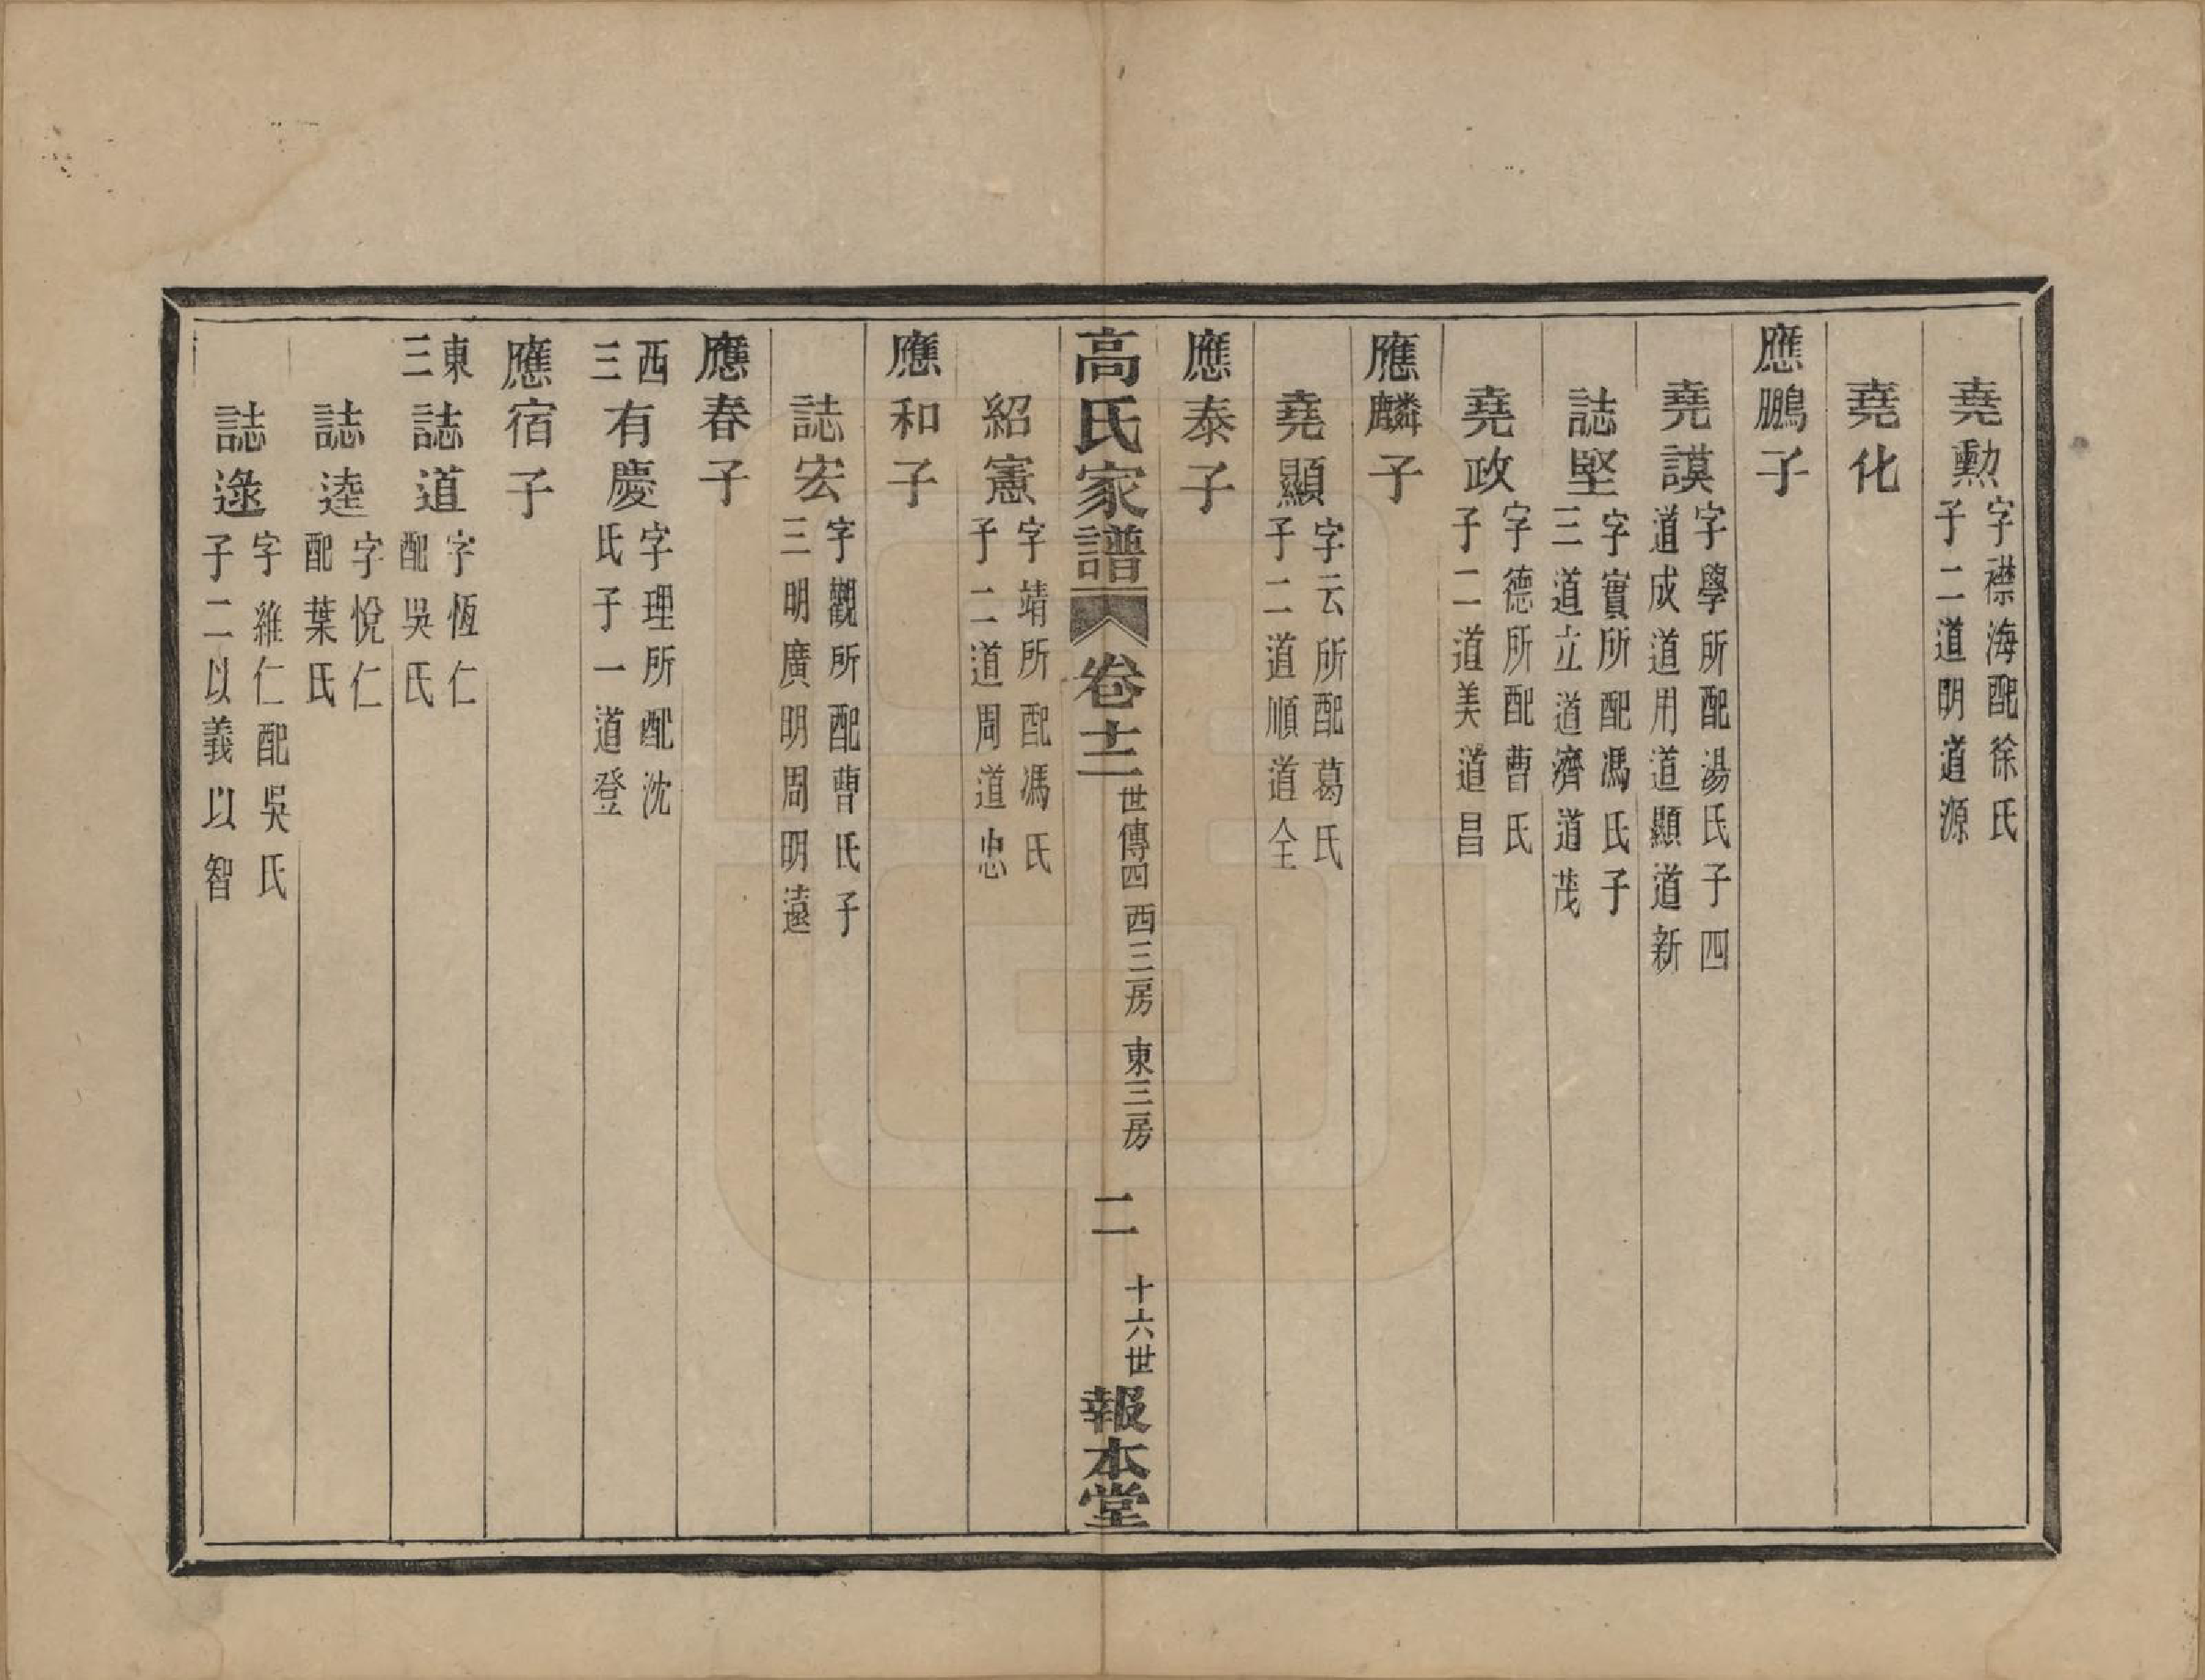 堯勳字襟海配徐氏子二道明道源
堯化
應鵬子
堯謨字學所配湯氏子四道成道用道顯道新
誌堅字實所配馮氏子三道立道濟道茂
堯政字德所配曹氏子二道美道昌
應麟子
堯顯字云所配葛氏子二道順道全
應泰子
高氏家譜 卷十二 世傳四 西三房 東三房 二 十六世 報本堂
紹憲字靖所配馮氏子二道周道忠
應和子
誌宏字觀所配曹氏子三明廣明周明遠
應春子
西三有慶字理所配沈氏子一道登
應宿子
東三誌道字恆仁配吳氏
誌逵字悅仁配葉氏
誌逯字維仁配吳氏子二以義以智